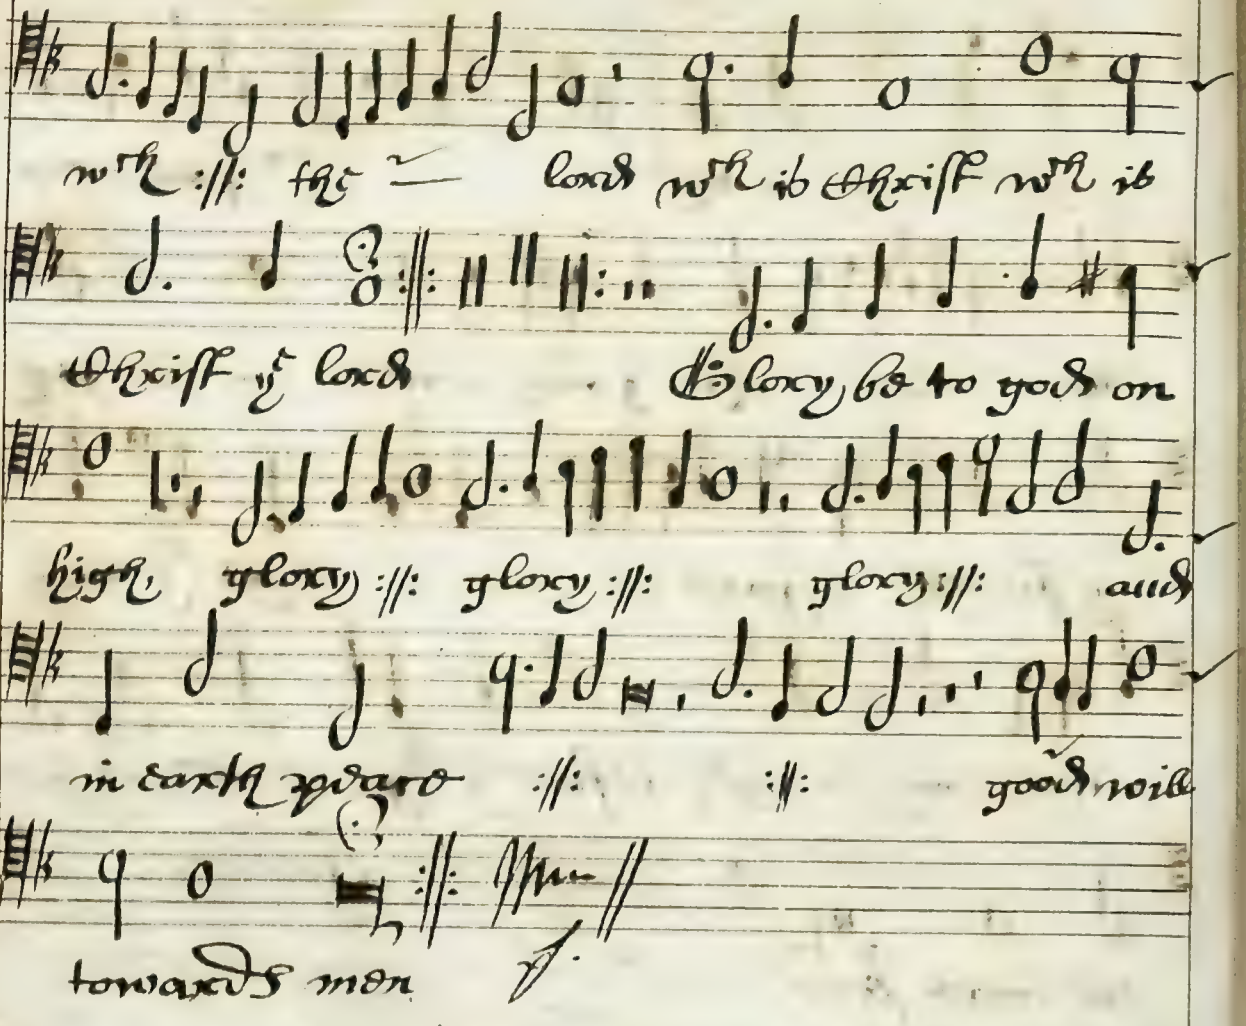 wch :||: the lord wch is Christ wch is
Christ ye lord Glory be to god on
high, glory :||: glory :||: glory :||: and
in earth peace :||: :||: good will
towards men